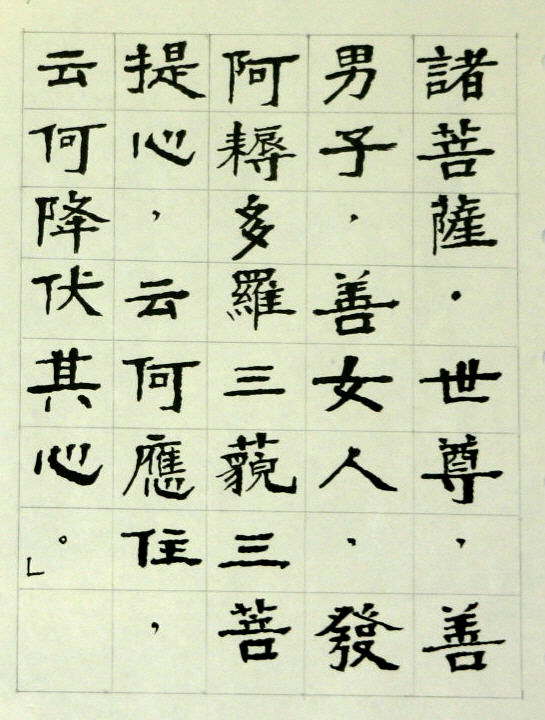 諸菩薩．世尊，善
男子，善女人，發
阿耨多羅三藐三菩
提心，云何應住，
云何降伏其心。」